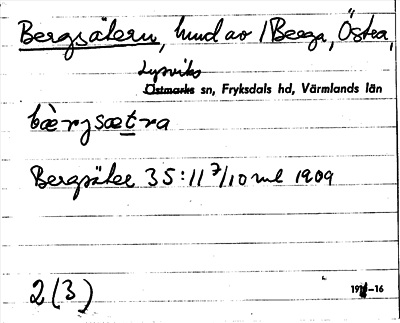 Bergsätern, hmd av 1 Berga, Östra,
Lysviks
Östmarks sn, Fryksdals hd, Värmlands län
bæ̀rjsætra
Bergsäter 35:11 7/10 mtl 1909
2(3)
19 -16